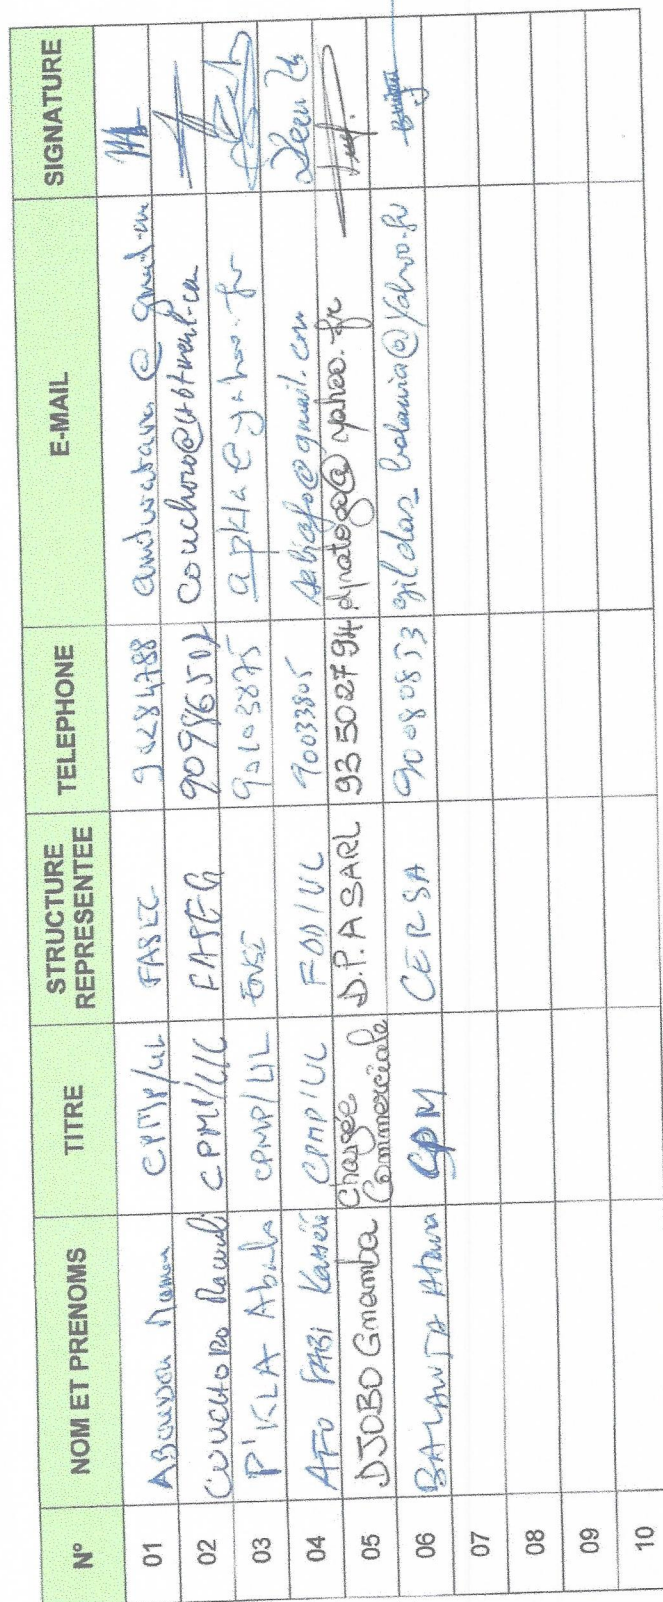 N° NOM ET PRENOMS TITRE STRUCTURE REPRESENTEE TELEPHONE E-MAIL SIGNATURE
01 CPMP/UL FASEG 90284788 @gmail.com
02 COUCHORO CPMP/UL FASEG 90986502 couchoro@hotmail.com
03 P'KLA CPMP/UL 90103875 apkla@yahoo.fr
04 AFO SABI Kasséré CPMP/UL FDD/UL 90033805 sabiafo@gmail.com
05 DJOBO Gnamba Chargée Commerciale D.P.A SARL 93502794 dpatogo@yahoo.fr
06 BALAWIA CPM CERSA 90080853 gildas_balawia@yahoo.fr
07
08
09
10